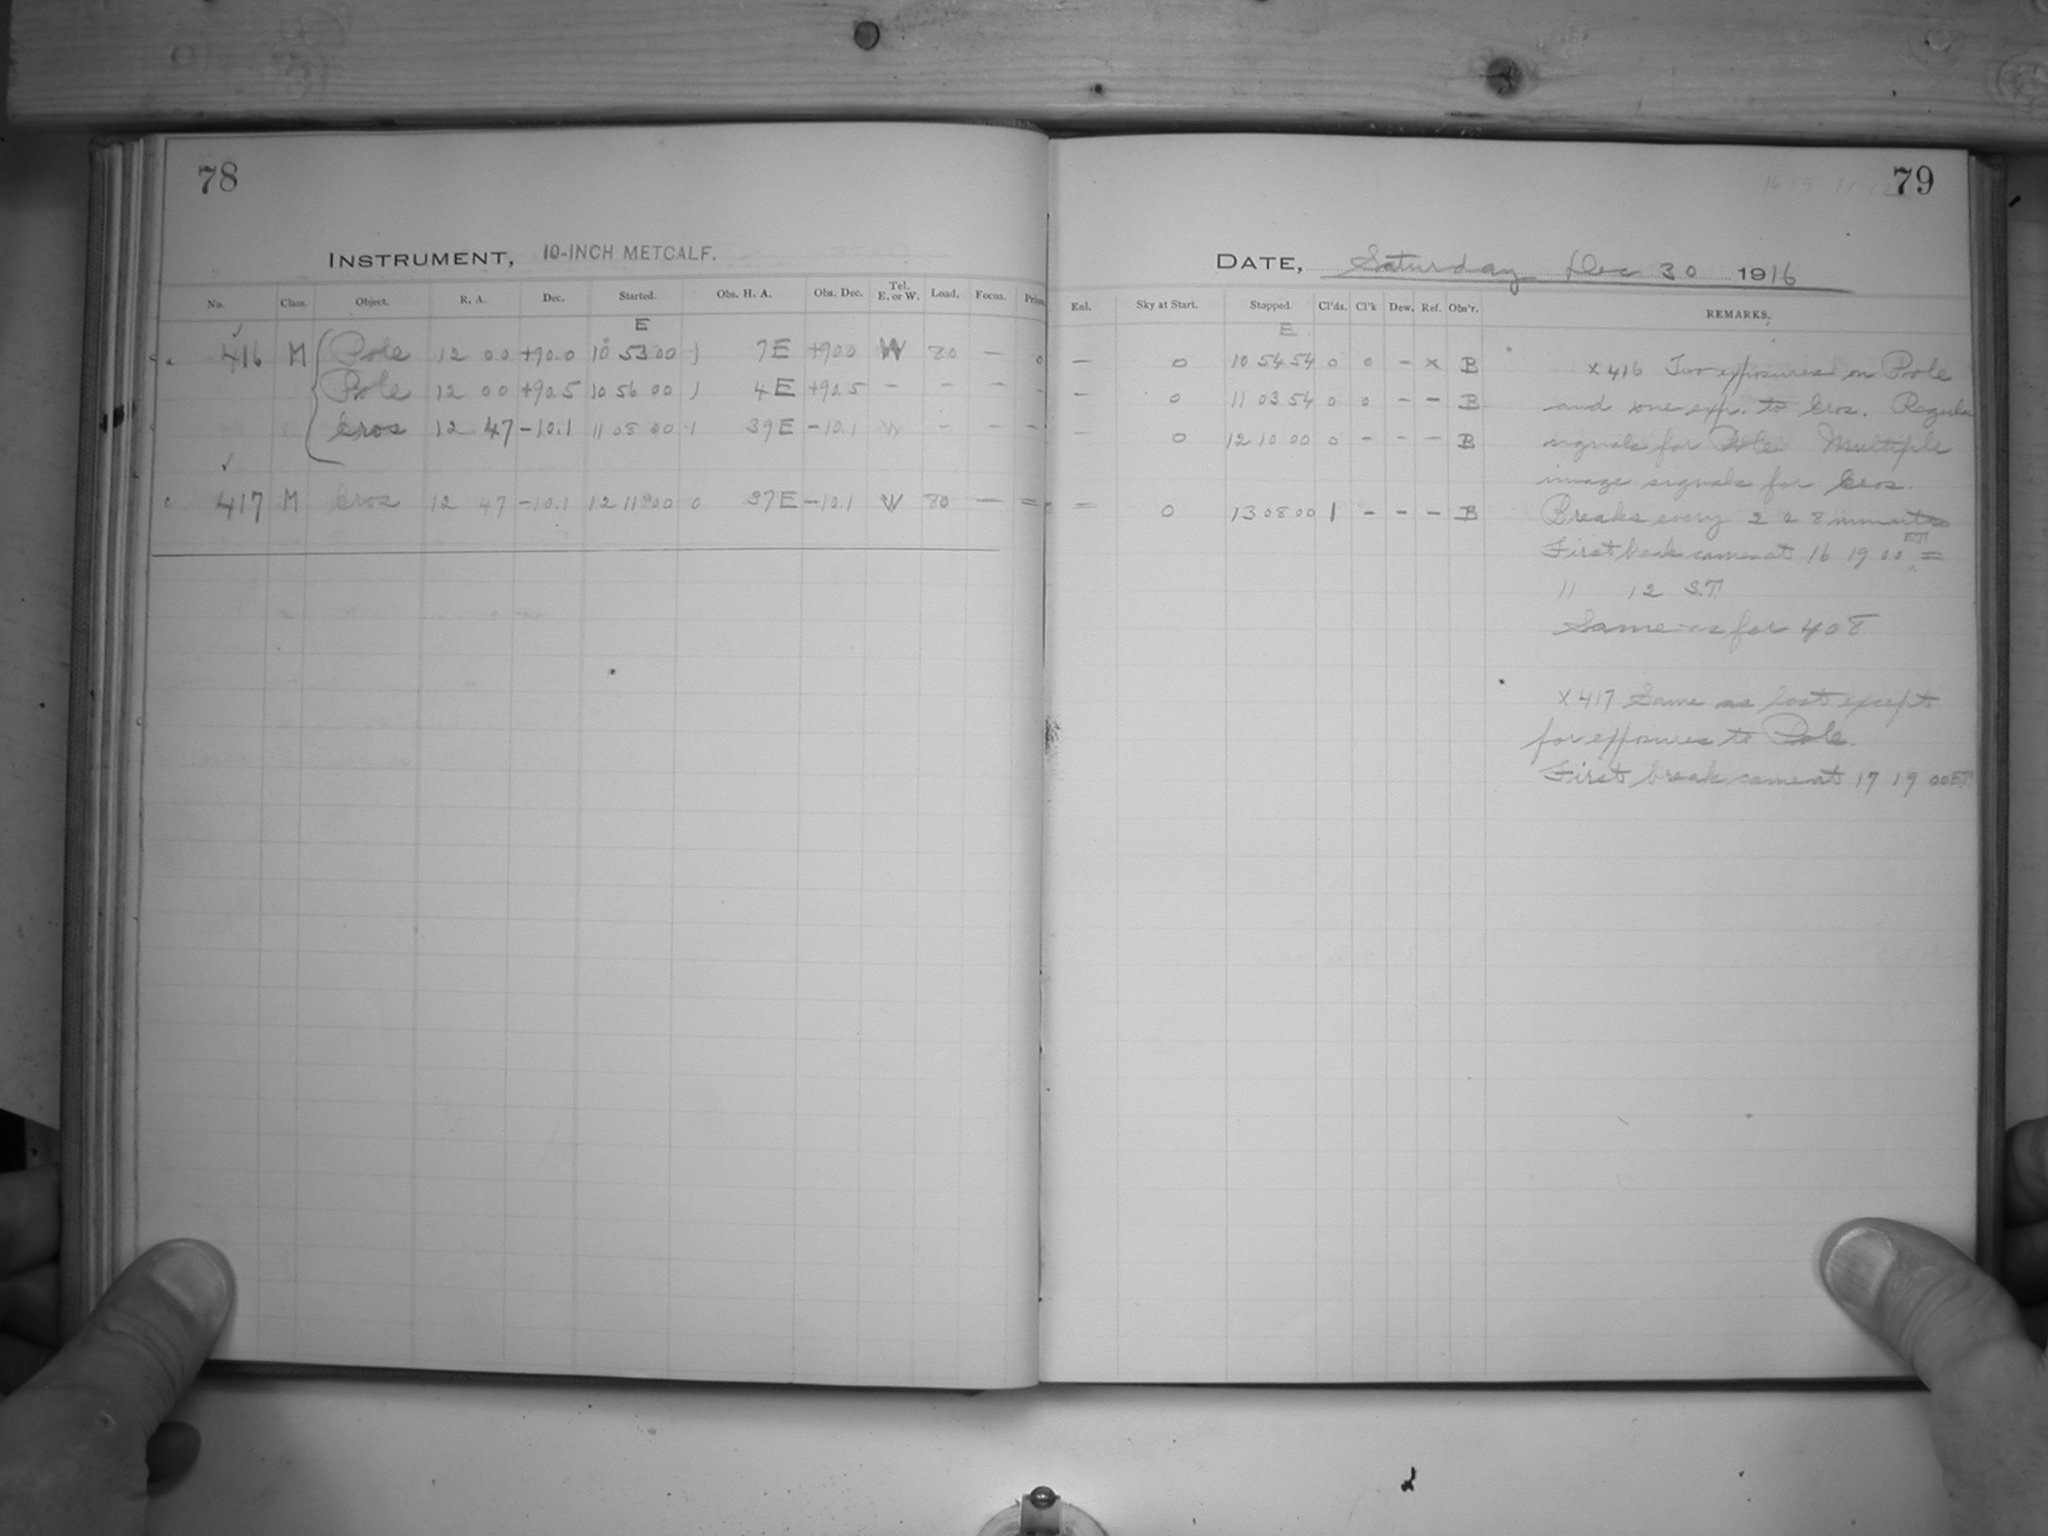 78
INSTRUMENT, 10-INCH METCALF.
No. Class. Object. R. A. Dec. Started. Obs. H. A. Obs. Dec. Tel. E. or W. Load. Focus.
E
416 M Pole 12 00 +90.0 10 53 00 1 7 E +90.0 W 80 — 0
Pole 12 00 +90.5 10 56 00 1 4 E +90.5 – – – –
Eros 12 47 –10.1 11 08 00 1 39 E –10.1 W – – –
417 M Eros 12 47 –10.1 12 11 00 0 37 E –10.1 W 80 — =
79
DATE, Saturday Dec 30 1916
Enl. Sky at Start. Stopped. Cl'ds. Cl'k Dew. Ref. Obs'r. REMARKS.
E
— 0 10 54 54 0 0 – x B
– 0 11 03 54 0 0 – – B
– 0 12 10 00 0 – – – B
= 0 13 08 00 1 – – – B
x 416 Two exposures on Pole
and one exp. to Eros. Regular
signals for Pole. Multiple
image signals for Eros.
Breaks every 2 2 8 minutes
First break came at 16 19 00 E.T. =
11 12 S.T.
Same as for 408
x 417 Same as last except
for exposures to Pole.
First break came at 17 19 00 E.T.